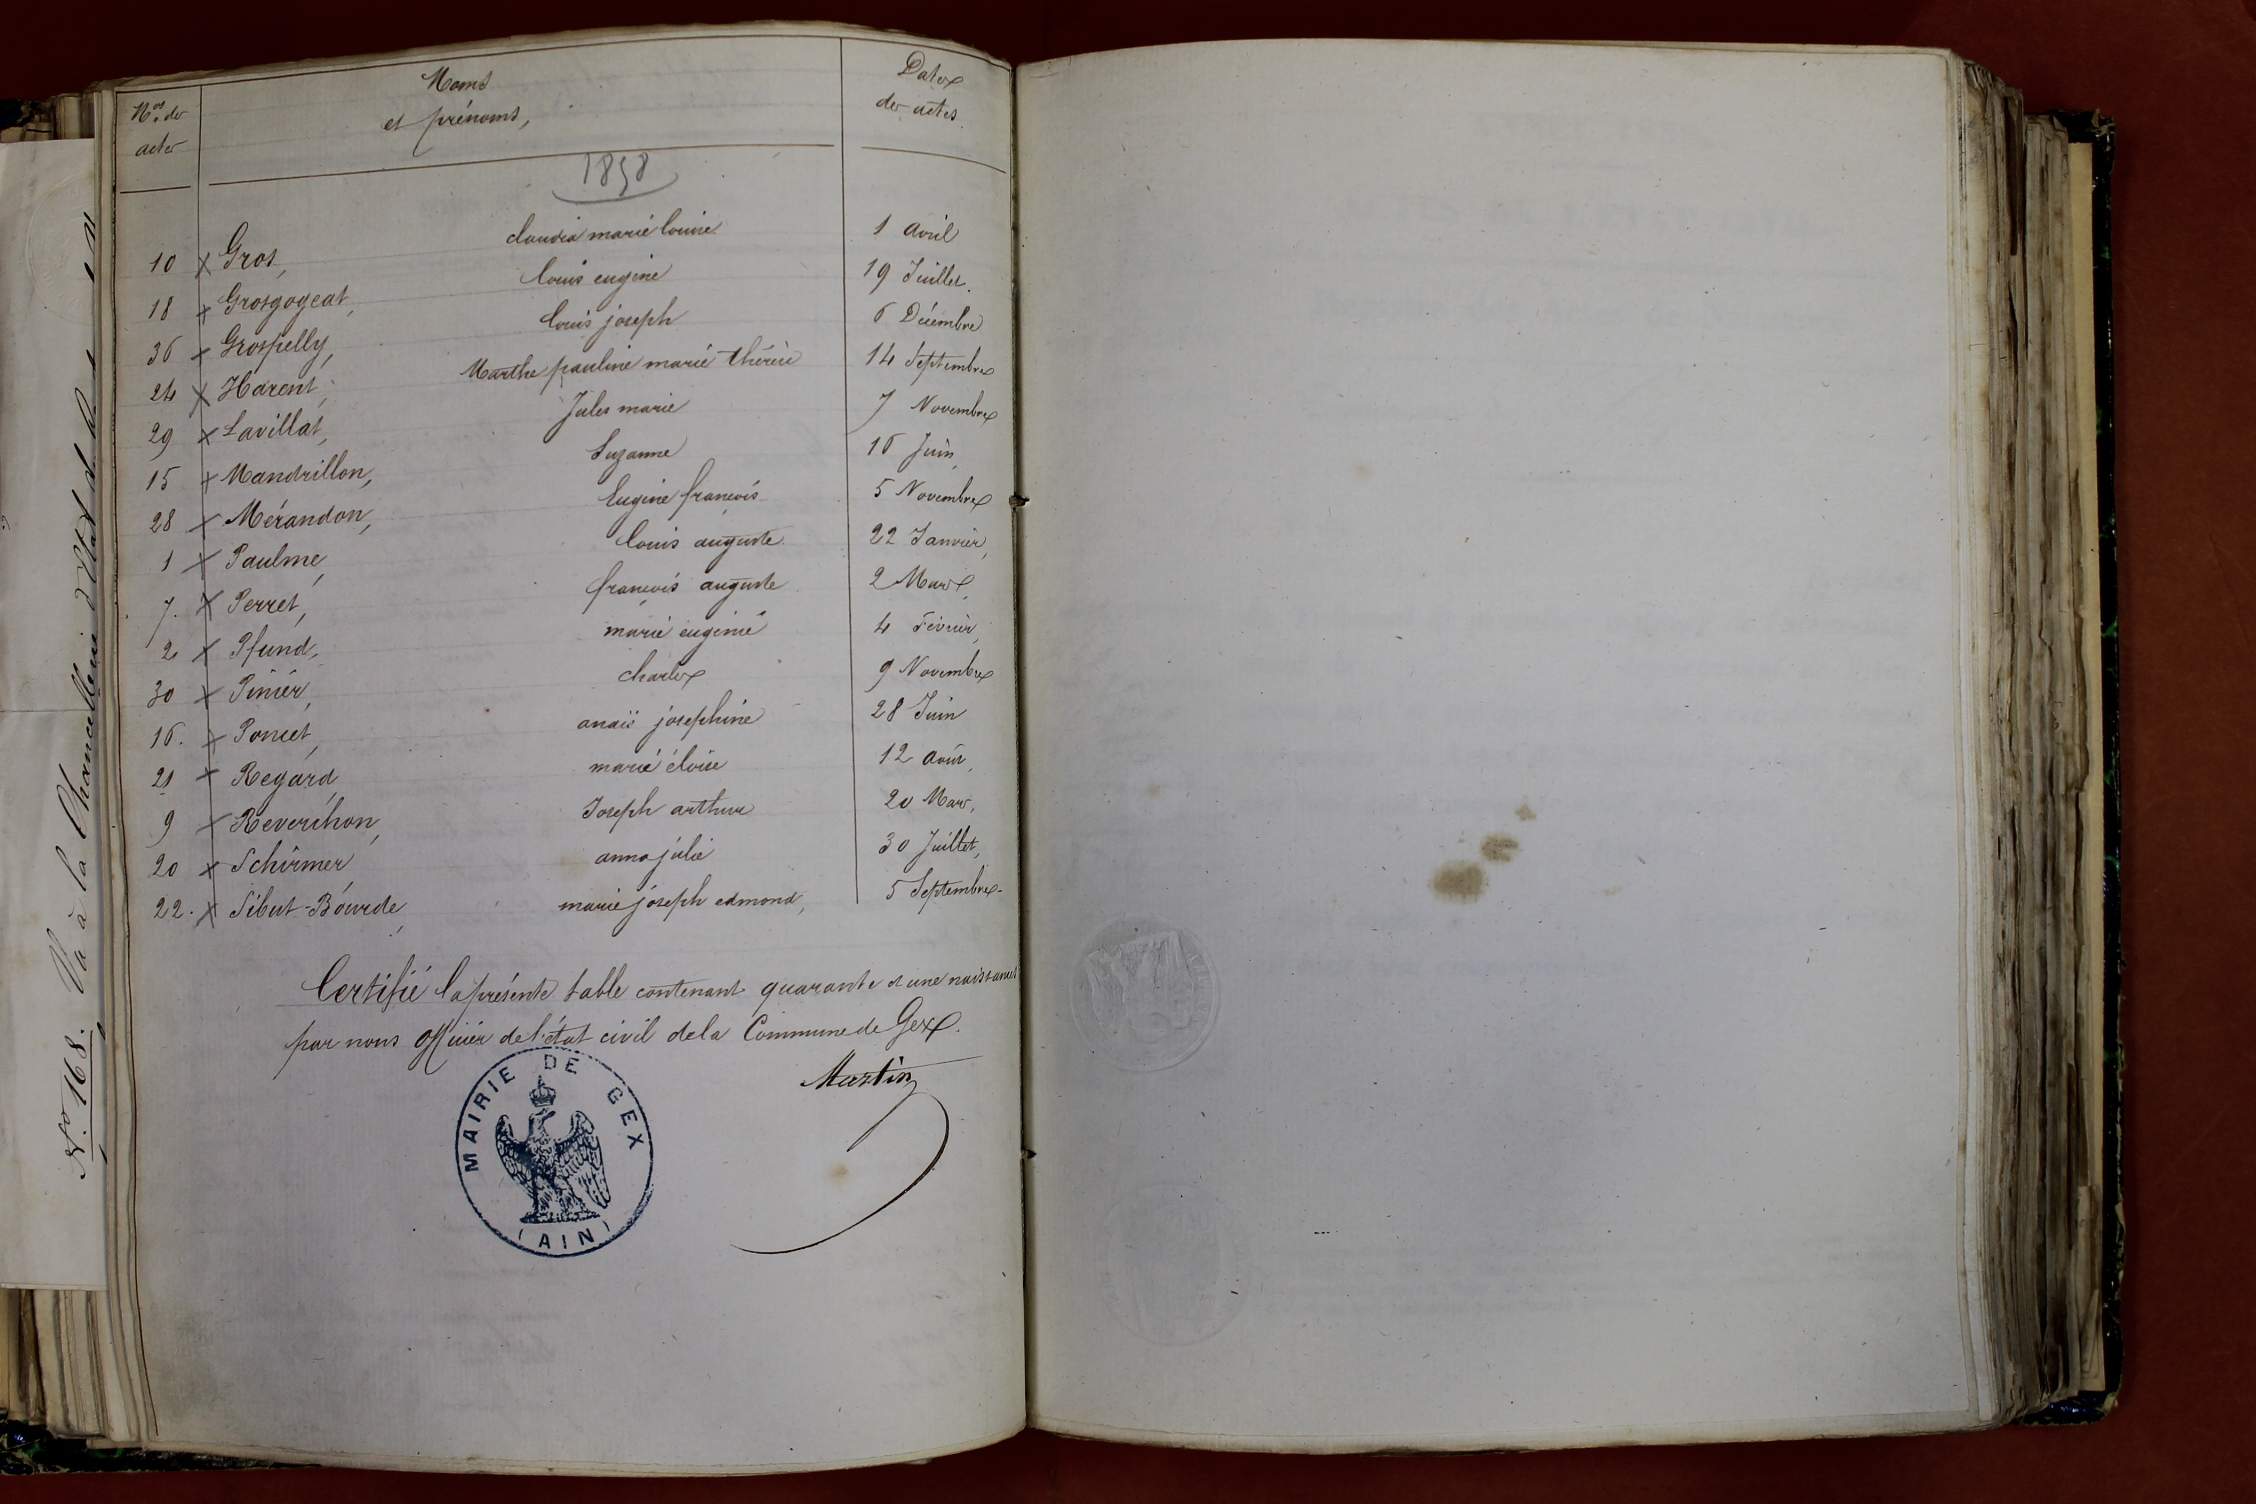 Nos de
actes
Noms
et prénoms,
Dates
des actes
1858
10 x Gros, claudia marie louise 1 avril
18 x Grosgogeat, louis eugène 19 Juillet.
36 x Grospelly, louis joseph 6 Décembre
24 x Harent, Marthe pauline marie thérèse 14 Septembre
29 x Lavillat, Jules marie 7 Novembre
15 x Mandrillon, Suzanne 16 Juin,
28 x Mérandon, Eugène françois 5 Novembre
1 x Paulme, louis auguste 22 Janvier,
7. x Perret, françois auguste 2 Mars,
2 x Pfund, marie eugénie 4 Février,
30 x Pinier, charles 9 Novembre
16. x Poncet, anaïs josephine 28 Juin
21 x Regard, marie éloise 12 août,
9 x Reverchon, Joseph arthur 20 Mars,
20 x Schirmer, anna julie 30 Juillet,
22. x Sibut-Bourde, marie joseph edmond, 5 Septembre
Certifié la présente table contenant quarante et une naissances
par nous officier de l'état civil de la Commune de Gex.
Martin
MAIRIE DE GEX
(AIN)
No. 168. Va à la Chancellerie d'Etat